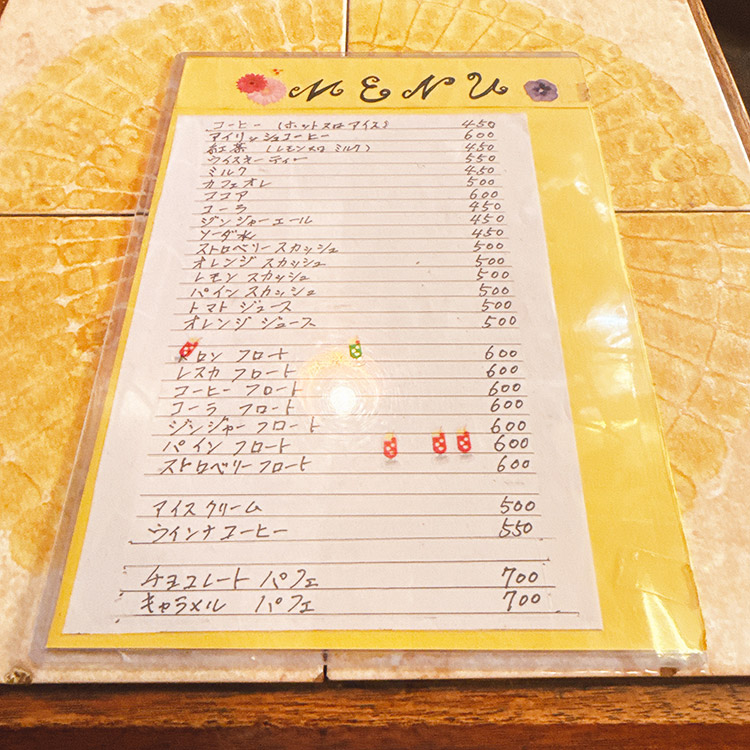 MENU
コーヒー (ホット又はアイス) 450
アイリッシュコーヒー 600
紅茶 (レモン又は ミルク) 450
ウイスキーティー 550
ミルク 450
カフェオレ 500
ココア 600
コーラ 450
ジンジャーエール 450
ソーダ水 450
ストロベリー スカッシュ 500
オレンジ スカッシュ 500
レモン スカッシュ 500
パイン スカッシュ 500
トマト ジュース 500
オレンジ ジュース 500
メロン フロート 600
レスカ フロート 600
コーヒー フロート 600
コーラ フロート 600
ジンジャー フロート 600
パイン フロート 600
ストロベリー フロート 600
アイスクリーム 500
ウインナコーヒー 550
チョコレート パフェ 700
キャラメル パフェ 700